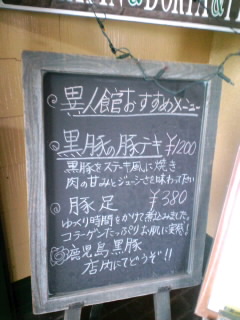 異人館おすすめメニュー
黒豚の豚テキ ¥1200
黒豚をステーキ風に焼き
肉の甘みとジューシーさを味わって下さい
豚足 ¥380
ゆっくり時間をかけて煮込みました。
コラーゲンたっぷりお肌に実感!
鹿児島黒豚
店内にてどうぞ!!